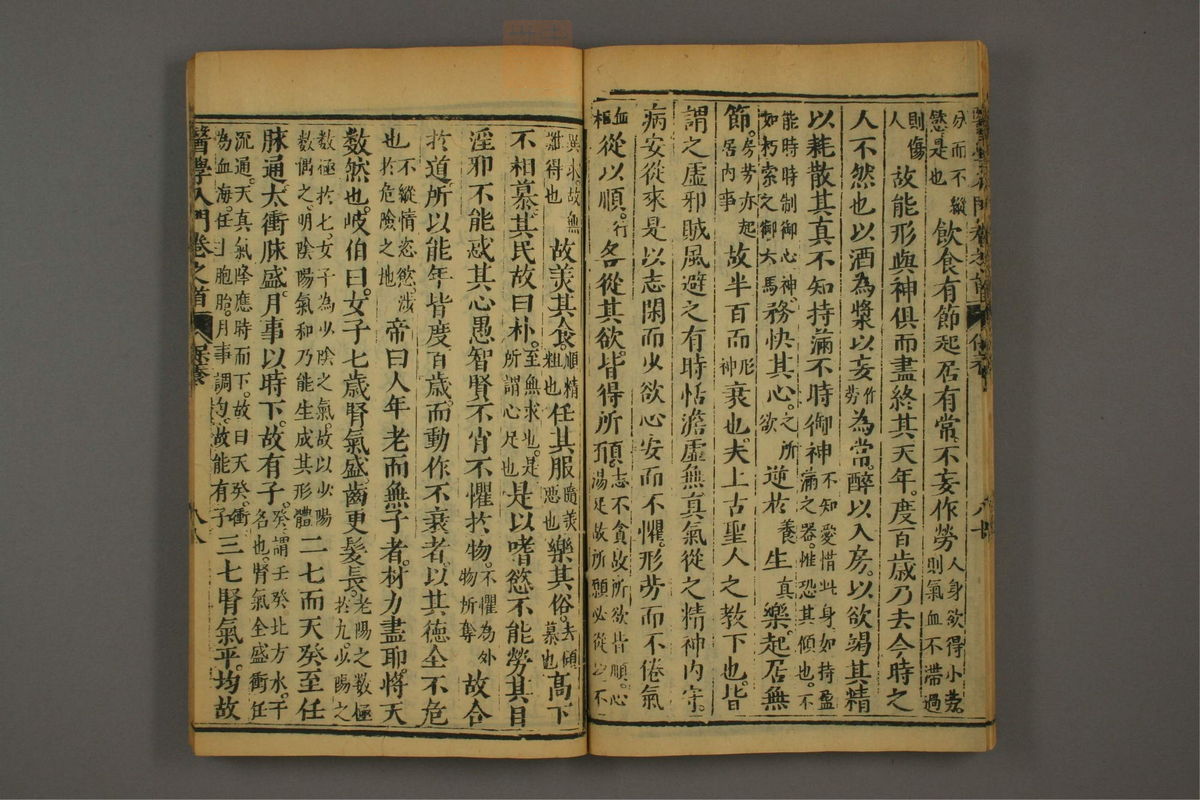 分而不縱慾是也飲食有節起居有常不妄作勞人身欲得小勞則氣血不滯過
則傷人故能形與神俱而盡終其天年度百歲乃去今時之
人不然也以酒為漿以妄作勞為常醉以入房以欲竭其精
以耗散其真不知持滿不時御神不知愛惜此身如持盈滿之器惟恐其傾也不
能時時制御心神如朽索之御六馬務快其心之所欲逆於養生真樂起居無
節房勞亦起居內事故半百而形神衰也夫上古聖人之教下也皆
謂之虛邪賊風避之有時恬澹虛無真氣從之精神內守
病安從來是以志閑而少欲心安而不懼形勞而不倦氣
血樞從以順行各從其欲皆得所願志不貪故所欲皆順心足故所願必從以不
異求故無難得也故美其食順精粗也任其服隨美惡也樂其俗去傾慕也高下
不相慕其民故曰朴至無求也是所謂心足也是以嗜慾不能勞其目
淫邪不能惑其心愚智賢不肖不懼於物不懼為外物所奪故合
於道所以能年皆度百歲而動作不衰者以其德全不危
也不縱情慾涉於危險之地帝曰人年老而無子者材力盡耶將天
数然也岐伯曰女子七歲腎氣盛齒更髮長老陽之数極於九少陽之
数極於七女子為少陰之氣故以少陽数偶之明陰陽氣和乃能生成其形體二七而天癸至任
脉通太衝脉盛月事以時下故有子癸謂壬癸北方水干名也腎氣全盛衝任
流通天真氣降應時而下故曰天癸衝為血海任主胞胎月事調均故能有子三七腎氣平均故
醫學入門卷之首